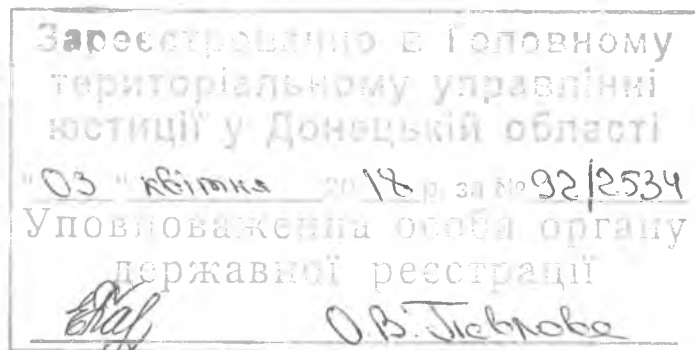 Зареєстровано в Головному
територіальному управлінні
юстиції у Донецькій області
"03" квітня 2018 р. за № 92/2534
Уповноважена особа органу
державної реєстрації
О.В.